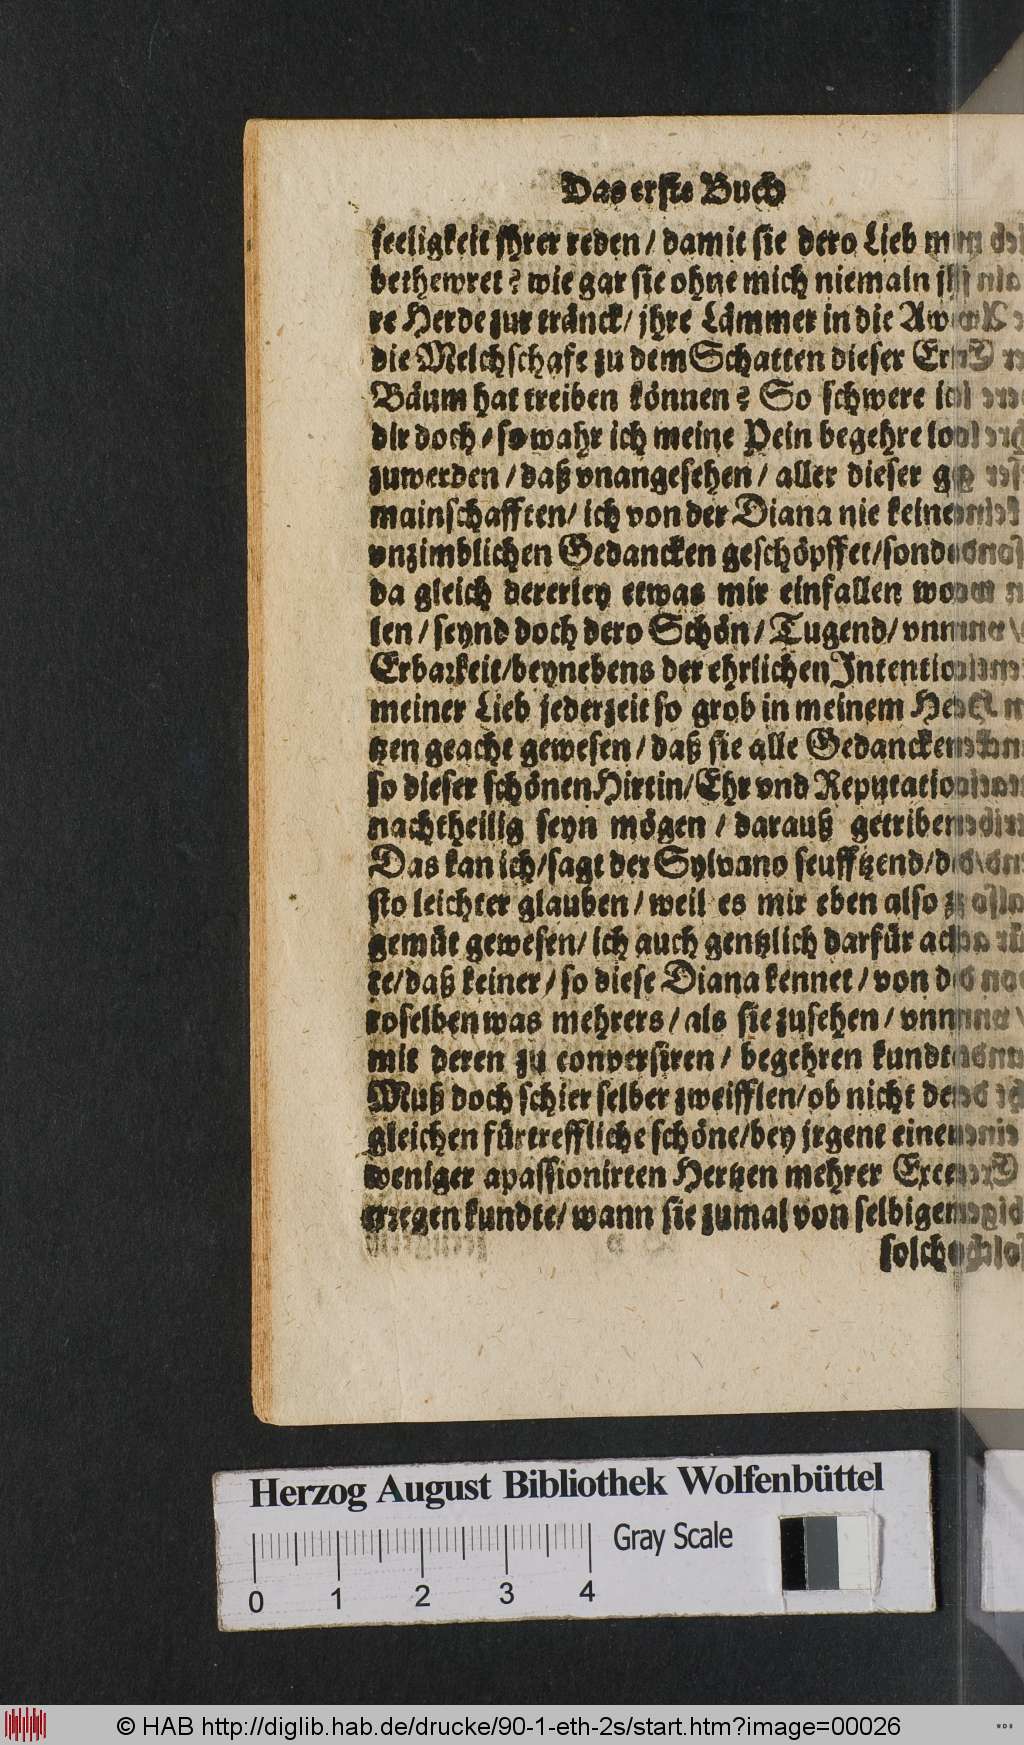 Das erste Buch
seeligkeit jhrer reden / damit sie dero Lieb
bethewret? wie gar sie ohne mich niemaln jh
re Herde zur tränck / jhre Lämmer in die Aw
die Melchschafe zu dem Schatten dieser
Bäum hat treiben können? So schwere ich
dir doch / so wahr ich meine Pein begehre loß
zuwerden / daß vnangesehen / aller dieser
mainschafften / ich von der Diana nie keine
vnzimblichen Gedancken geschöpffet / sonder
da gleich dererley etwas mir einfallen wol
len / seynd doch dero Schön / Tugend / vnnd
Erbarkeit / beynebens der ehrlichen Intention
meiner Lieb jederzeit so grob in meinem Her
tzen geacht gewesen / daß sie alle Gedancken
so dieser schönen Hirtin / Ehr vnd Reputation
nachtheilig seyn mögen / darauß getriben
Das kan ich / sagt der Sylvano seufftzend / de
sto leichter glauben / weil es mir eben also zu
gemüt gewesen / ich auch gentzlich darfür ach
te / daß keiner / so diese Diana kennet / von de
roselben was mehrers / als sie zusehen / vnnd
mit deren zu conversiren / begehren kundt
Muß doch schier selber zweifflen / ob nicht der
gleichen fürtreffliche schöne / bey jrgent einem
weniger apassionirten Hertzen mehrer Exce
wegen kundte / wann sie zumal von selbigem
solch
Herzog August Bibliothek Wolfenbüttel
0 1 2 3 4
Gray Scale
© HAB http://diglib.hab.de/drucke/90-1-eth-2s/start.htm?image=00026